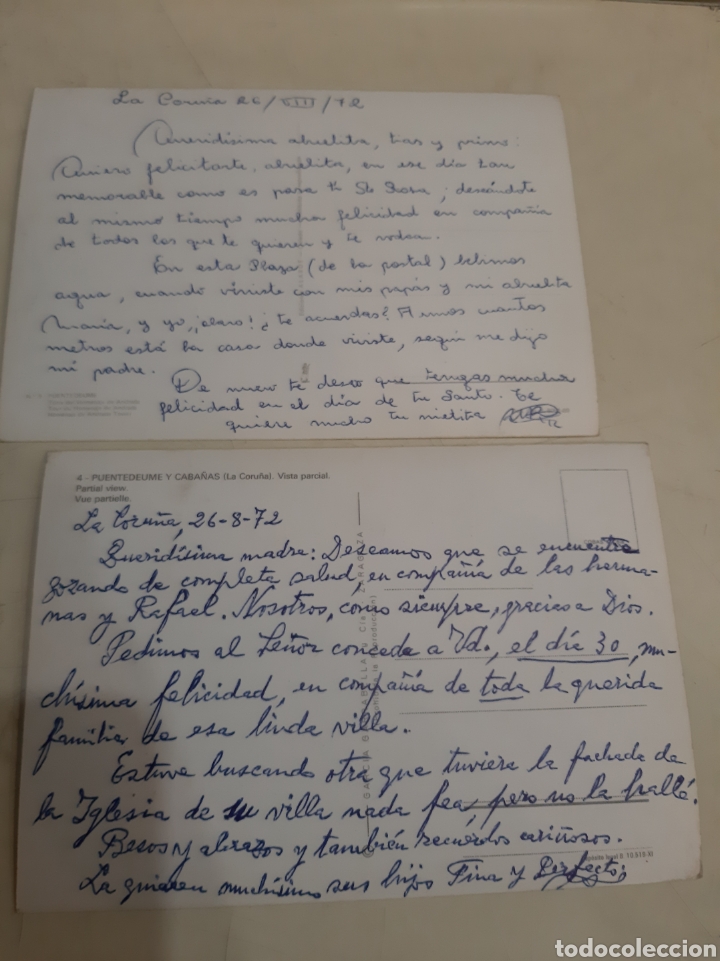 La Coruña 26/VIII/72
Queridísima abuelita, tías y primo:
Quiero felicitarte, abuelita, en ese día tan
memorable como es para ti Sta Rosa; deseándote
al mismo tiempo mucha felicidad en compañía
de todos los que te quieren y te rodea.
En esta Plaza (de la postal) bebimos
agua, cuando viniste con mis papás y mi abuelita
María, y yo, ¡claro! ¿te acuerdas? A unos cuantos
metros está la casa donde viviste, según me dijo
mi padre.
De nuevo te deseo que tengas mucha
felicidad en el día de tu Santo. Te
quiere mucho tu nietita
4 - PUENTEDEUME Y CABAÑAS (La Coruña). Vista parcial.
Partial view.
Vue partielle.
La Coruña, 26-8-72
Queridísima madre: Deseamos que se encuentre
gozando de completa salud, en compañía de las herma-
nas y Rafael. Nosotros, como siempre, gracias a Dios.
Pedimos al Señor conceda a Vd., el día 30, mu-
chísima felicidad, en compañía de toda la querida
familia de esa linda villa.
Estuve buscando otra que tuviera la fachada de
la Iglesia de su villa nada fea, pero no la hallé.
Besos y abrazos y también recuerdos cariñosos.
La quieren muchísimo sus hijos Fina y Perfecto.
todocoleccion